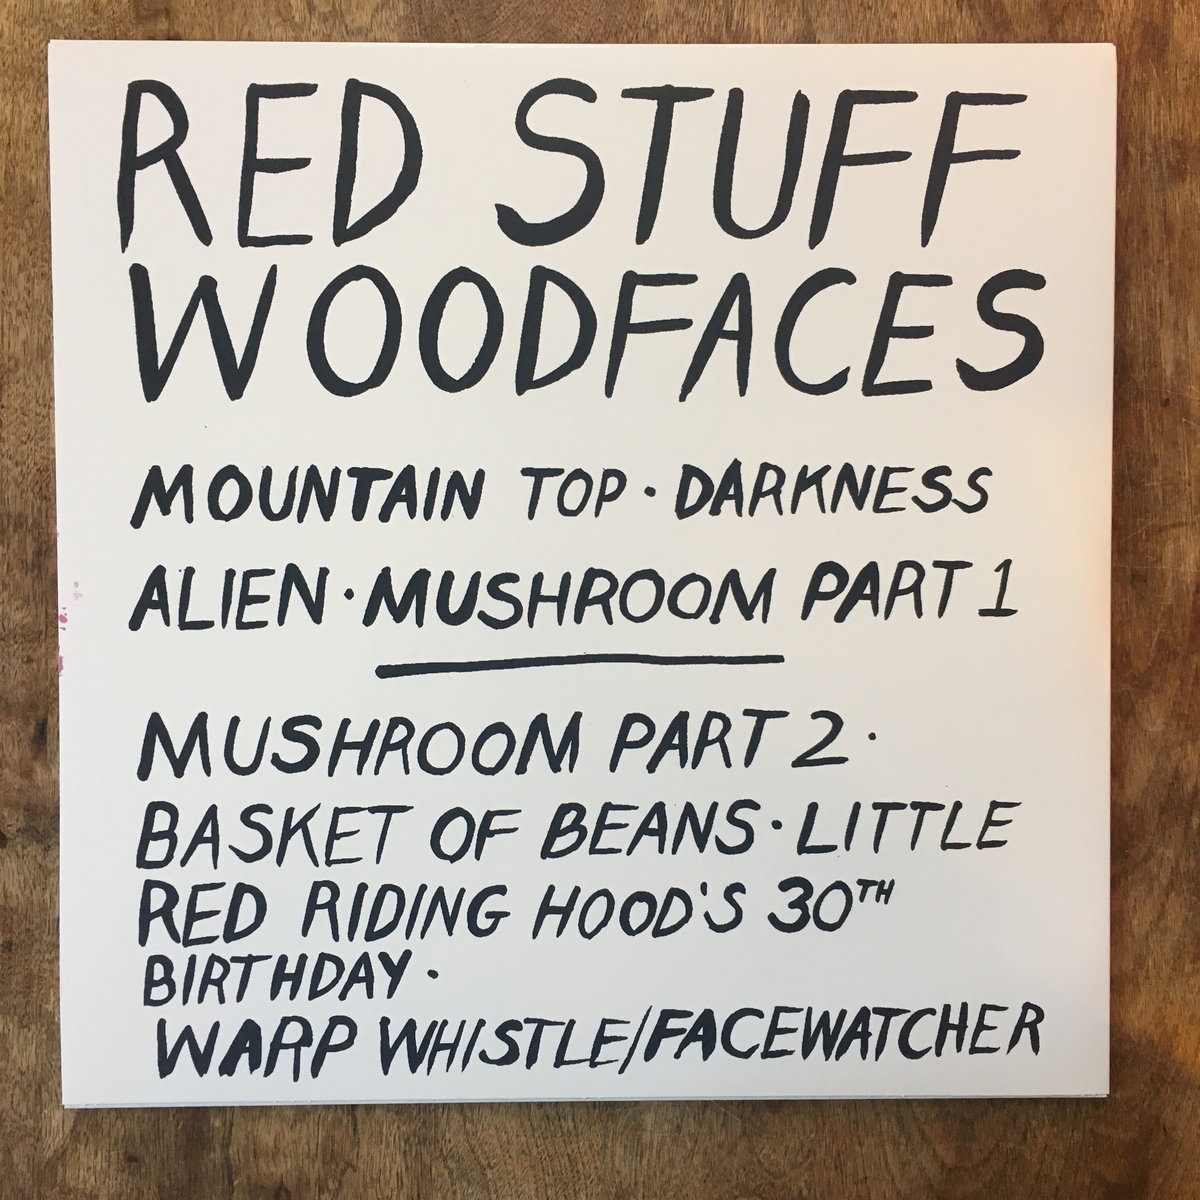 RED STUFF
WOODFACES
MOUNTAIN TOP · DARKNESS
ALIEN · MUSHROOM PART 1
MUSHROOM PART 2 ·
BASKET OF BEANS · LITTLE
RED RIDING HOOD'S 30TH
BIRTHDAY ·
WARP WHISTLE/FACEWATCHER